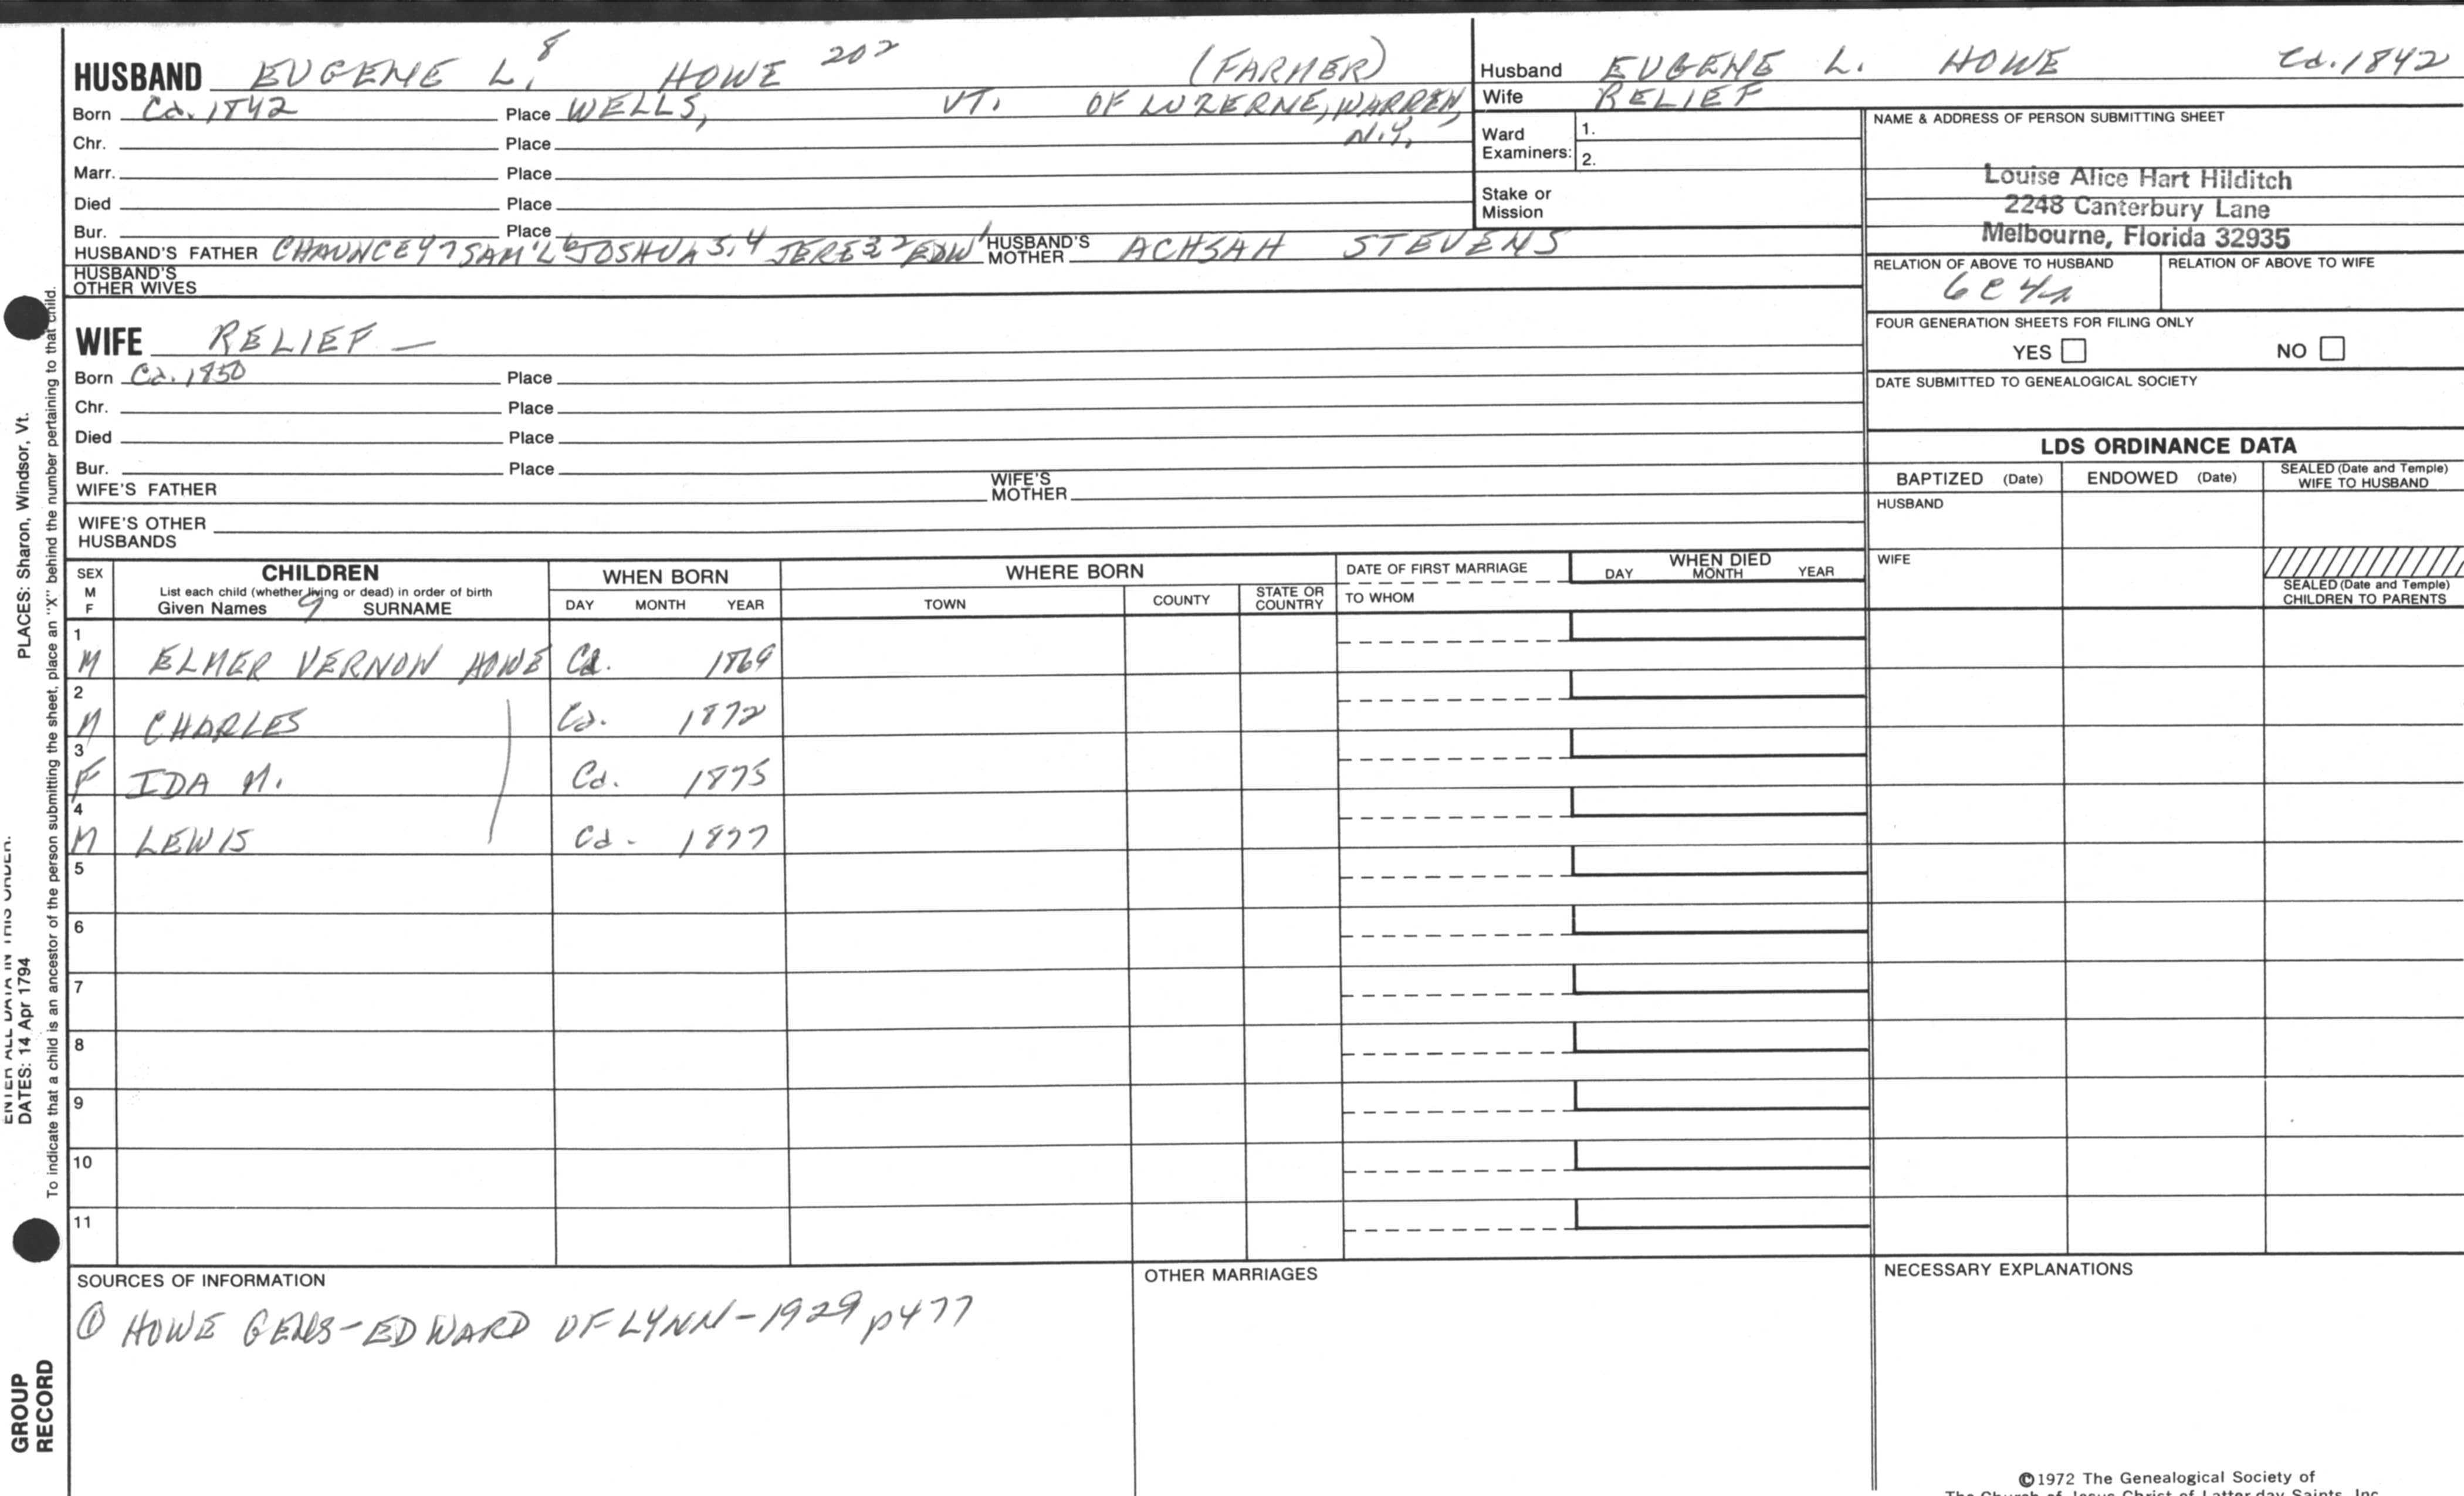 HUSBAND EUGENE L. 8 HOWE 202 (FARMER)
Born Ca. 1842 Place WELLS, VT. OF LUZERNE, WARREN, N.Y.
Chr. Place
Marr. Place
Died Place
Bur. Place
HUSBAND'S FATHER CHAUNCEY 7 SAM'L 6 JOSHUA 5,4 JERE 3 2 EDW 1 HUSBAND'S MOTHER ACHSAH STEVENS
HUSBAND'S OTHER WIVES
WIFE RELIEF —
Born Ca. 1850 Place
Chr. Place
Died Place
Bur. Place
WIFE'S FATHER WIFE'S MOTHER
WIFE'S OTHER HUSBANDS
Husband EUGENE L. HOWE Ca. 1842
Wife RELIEF
Ward Examiners: 1.
2.
Stake or Mission
NAME & ADDRESS OF PERSON SUBMITTING SHEET
Louise Alice Hart Hilditch
2248 Canterbury Lane
Melbourne, Florida 32935
RELATION OF ABOVE TO HUSBAND RELATION OF ABOVE TO WIFE
FOUR GENERATION SHEETS FOR FILING ONLY
YES NO
DATE SUBMITTED TO GENEALOGICAL SOCIETY
LDS ORDINANCE DATA
BAPTIZED (Date) ENDOWED (Date) SEALED (Date and Temple) WIFE TO HUSBAND
HUSBAND
WIFE
SEALED (Date and Temple) CHILDREN TO PARENTS
SEX M F
CHILDREN
List each child (whether living or dead) in order of birth
Given Names 9 SURNAME
WHEN BORN
DAY MONTH YEAR
WHERE BORN
TOWN COUNTY STATE OR COUNTRY
DATE OF FIRST MARRIAGE
TO WHOM
WHEN DIED
DAY MONTH YEAR
1 M ELMER VERNON HOWE Ca. 1869
2 M CHARLES Ca. 1872
3 F IDA M. Ca. 1875
4 M LEWIS Ca. 1877
5
6
7
8
9
10
11
SOURCES OF INFORMATION
① HOWE GENS-EDWARD OF LYNN-1929 p477
OTHER MARRIAGES
NECESSARY EXPLANATIONS
©1972 The Genealogical Society of
The Church of Jesus Christ of Latter-day Saints, Inc.
PLACES: Sharon, Windsor, Vt.
ENTER ALL DATA IN THIS ORDER:
DATES: 14 Apr 1794
To indicate that a child is an ancestor of the person submitting the sheet, place an "X" behind the number pertaining to that child.
GROUP
RECORD